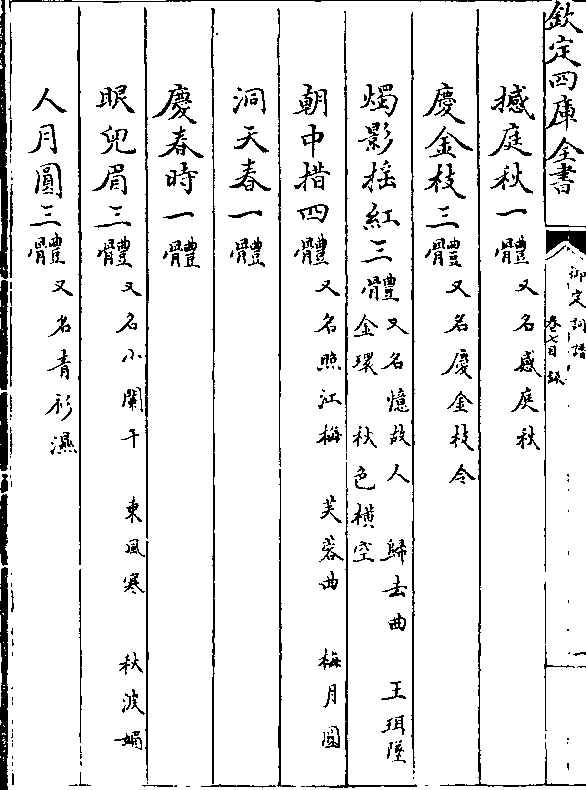 欽定四庫全書
御定詞譜
卷七目錄
一
撼庭秋一體又名感庭秋
慶金枝三體又名慶金枝令
燭影搖紅三體又名憶故人　歸去曲　玉珥墜
金環　秋色橫空
朝中措四體又名照江梅　芙蓉曲　梅月圓
洞天春一體
慶春時一體
眼兒眉三體又名小闌干　東風寒　秋波媚
人月圓三體又名青衫濕